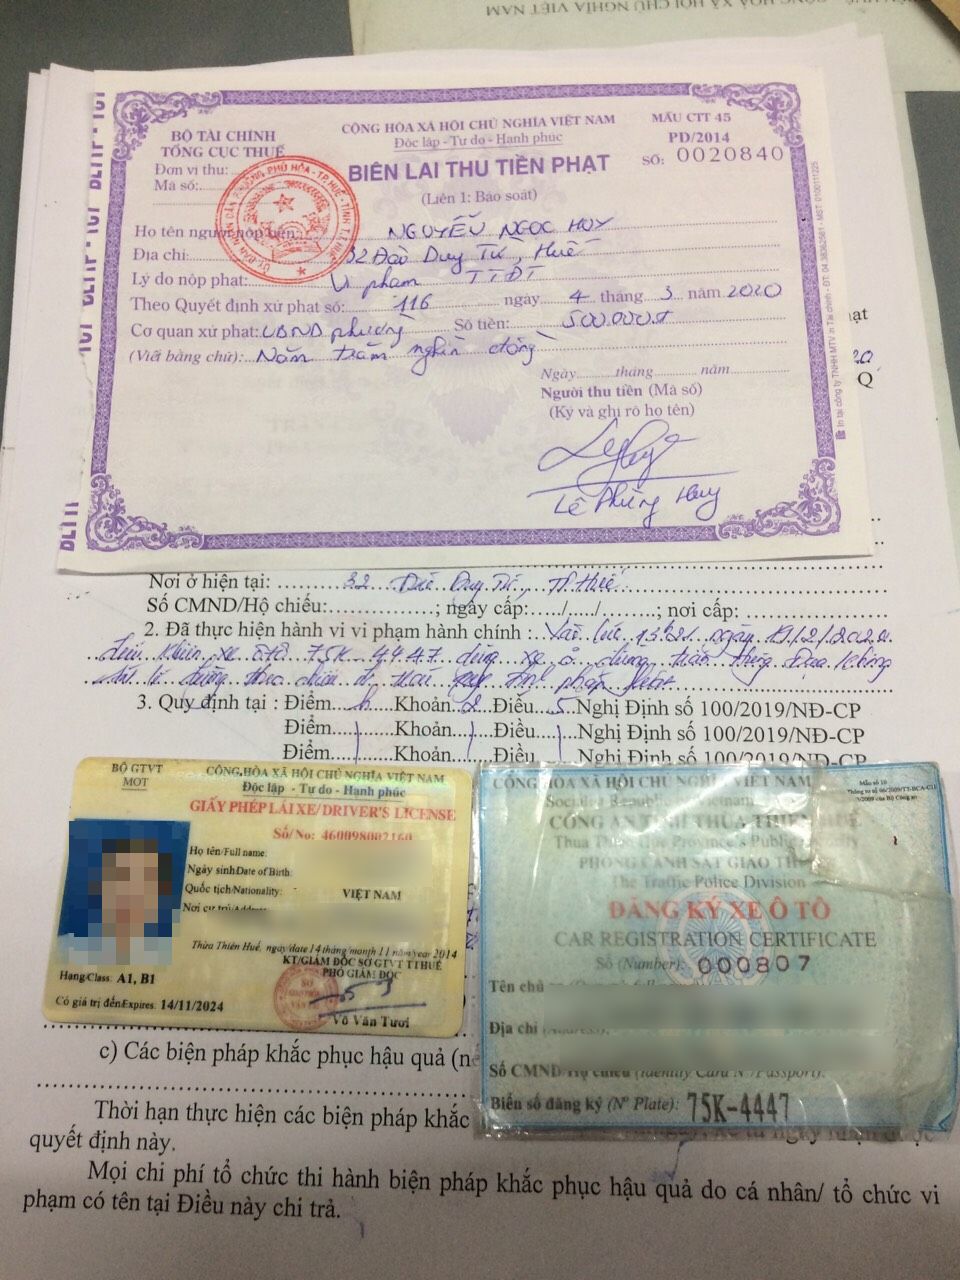 CỘNG HÒA XÃ HỘI CHỦ NGHĨA VIỆT NAM
BỘ TÀI CHÍNH
TỔNG CỤC THUẾ
CỘNG HÒA XÃ HỘI CHỦ NGHĨA VIỆT NAM
Độc lập - Tự do - Hạnh phúc
MẪU CTT 45
PD/2014
Đơn vị thu:
Mã số:
BIÊN LAI THU TIỀN PHẠT
SỐ: 0020840
(Liên 1: Báo soát)
Họ tên người nộp tiền: NGUYỄN NGỌC HUY
Địa chỉ: 32 Đào Duy Từ, Huế
Lý do nộp phạt: Vi phạm TTĐT
Theo Quyết định xử phạt số: 116 ngày 4 tháng 3 năm 2020
Cơ quan xử phạt: UBND phường Số tiền: 500.000đ
(Viết bằng chữ): Năm trăm nghìn đồng
Ngày ........ tháng ........ năm ........
Người thu tiền (Mã số)
(Ký và ghi rõ họ tên)
Lê Phùng Huy
Nơi ở hiện tại: 32 Đào Duy Từ, TP Huế
Số CMND/Hộ chiếu:................; ngày cấp:...../...../........; nơi cấp:
2. Đã thực hiện hành vi vi phạm hành chính : Vào lúc 13h21 ngày 19/2/2020
điều khiển xe ôtô 75K 4447 dừng xe ở
3. Quy định tại : Điểm h Khoản 2 Điều 5 Nghị Định số 100/2019/NĐ-CP
Điểm Khoản Điều Nghị Định số 100/2019/NĐ-CP
Điểm Khoản Điều Nghị Định số 100/2019/NĐ-CP
BỘ GTVT
MOT
CỘNG HÒA XÃ HỘI CHỦ NGHĨA VIỆT NAM
Độc lập - Tự do - Hạnh phúc
GIẤY PHÉP LÁI XE/DRIVER'S LICENSE
Số/No: 460098002160
Họ tên/Full name:
Ngày sinh/Date of Birth:
Quốc tịch/Nationality: VIỆT NAM
Nơi cư trú/Address:
Thừa Thiên Huế, ngày/date 14 tháng/month 11 năm/year 2014
KT/GIÁM ĐỐC SỞ GTVT TTHUẾ
PHÓ GIÁM ĐỐC
Hạng/Class: A1, B1
Có giá trị đến/Expires: 14/11/2024
Võ Văn Tươi
CỘNG HÒA XÃ HỘI CHỦ NGHĨA VIỆT NAM
CÔNG AN TỈNH THỪA THIÊN HUẾ
Thua Thien Hue Province's Public Security
PHÒNG CẢNH SÁT GIAO THÔNG
The Traffic Police Division
ĐĂNG KÝ XE Ô TÔ
CAR REGISTRATION CERTIFICATE
Số (Number): 000807
Tên chủ
Địa chỉ (Address):
Số CMND/Hộ chiếu (Identity Card N°/Passport):
Biển số đăng ký (N° Plate): 75K-4447
c) Các biện pháp khắc phục hậu quả
Thời hạn thực hiện các biện pháp khắc
quyết định này.
Mọi chi phí tổ chức thi hành biện pháp khắc phục hậu quả do cá nhân/ tổ chức vi
phạm có tên tại Điều này chi trả.